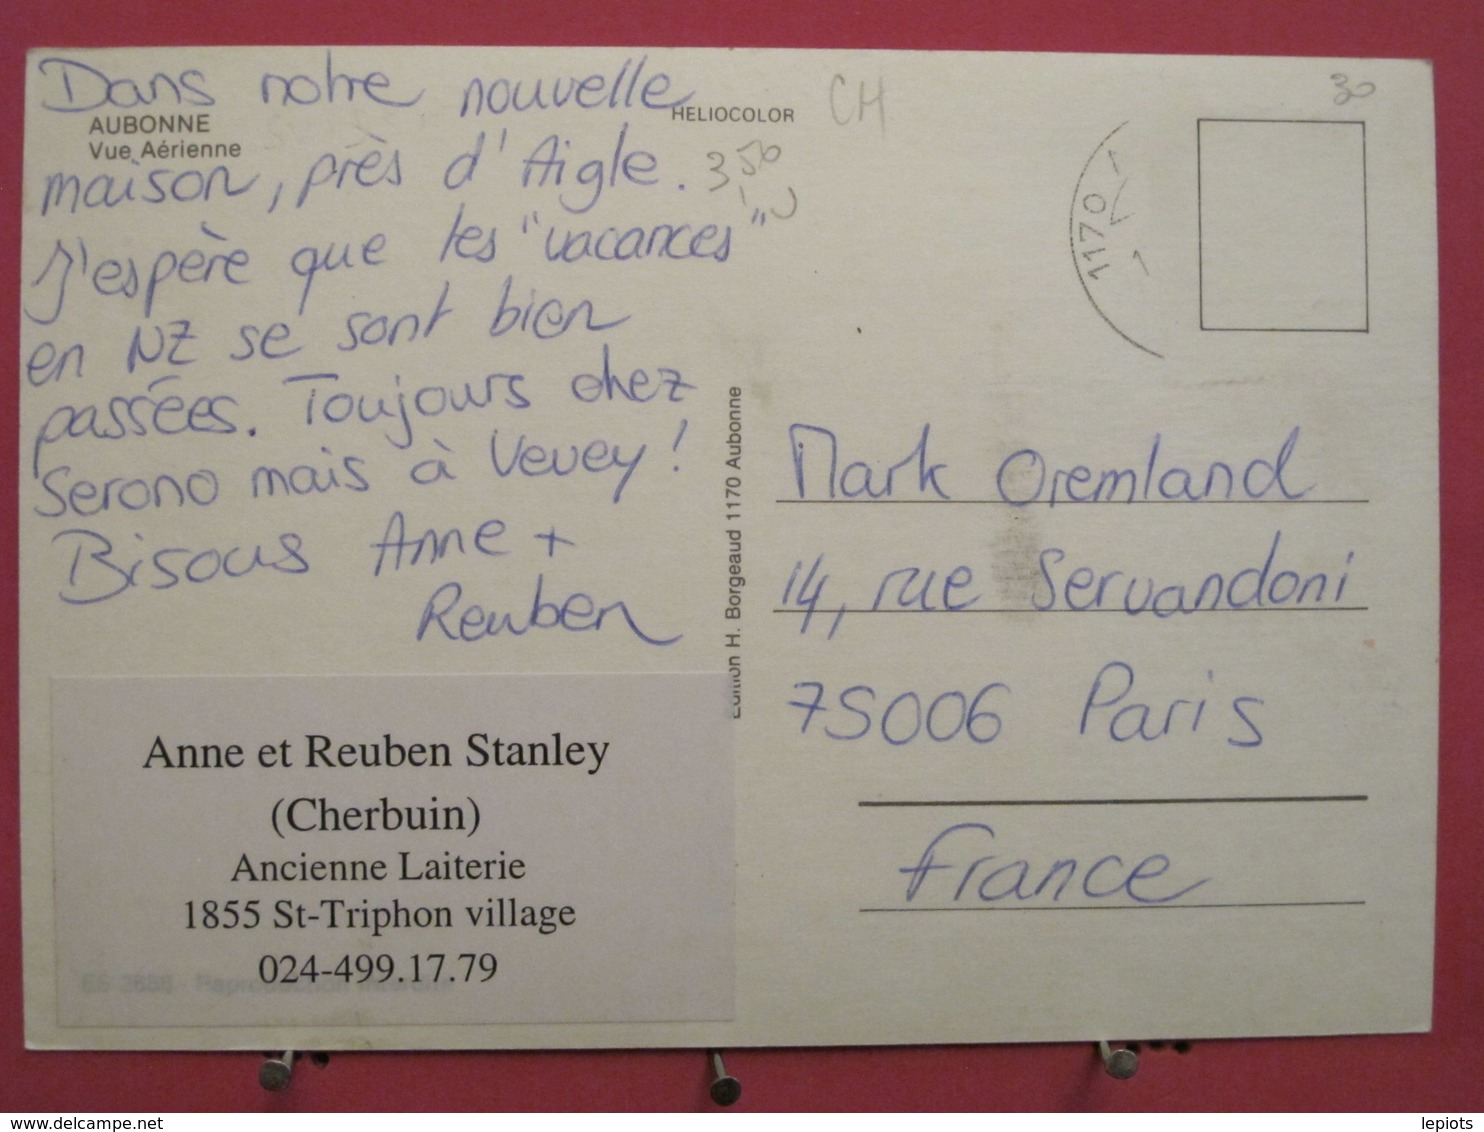 Dans notre nouvelle
HELIOCOLOR
AUBONNE
Vue Aérienne
maison, près d'Aigle.
J'espère que les "vacances"
en NZ se sont bien
passées. Toujours chez
Serono mais à Vevey !
Bisous Anne +
Reuben
Anne et Reuben Stanley
(Cherbuin)
Ancienne Laiterie
1855 St-Triphon village
024-499.17.79
Edition H. Borgeaud 1170 Aubonne
CH
3 50
30
1170
Mark Oremland
14, rue Servandoni
75006 Paris
France
delcampe.net
lepiots